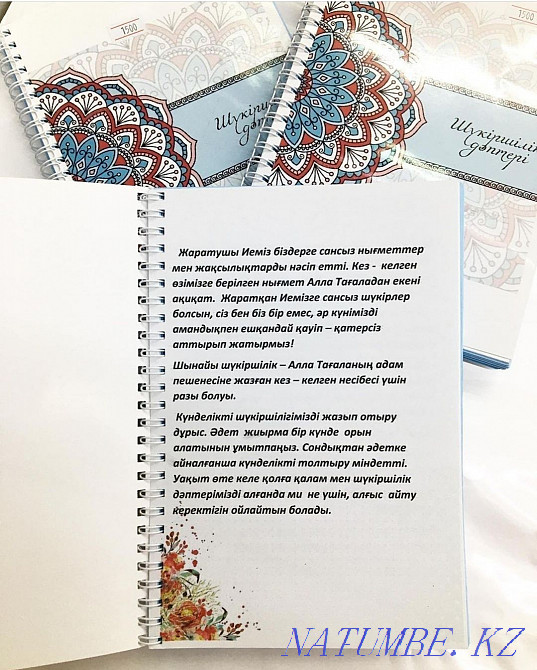 1500
1500
Шүкіршілік
дәптері
Шүкіршілік
дәптері
Жаратушы Иеміз біздерге сансыз нығметтер
мен жақсылықтарды нәсіп етті. Кез - келген
өзімізге берілген нығмет Алла Тағаладан екені
ақиқат. Жаратқан Иемізге сансыз шүкірлер
болсын, сіз бен біз бір емес, әр күнімізді
амандықпен ешқандай қауіп – қатерсіз
аттырып жатырмыз!
Шынайы шүкіршілік – Алла Тағаланың адам
пешенесіне жазған кез – келген несібесі үшін
разы болуы.
Күнделікті шүкіршілігімізді жазып отыру
дұрыс. Әдет жиырма бір күнде орын
алатынын ұмытпаңыз. Сондықтан әдетке
айналғанша күнделікті толтыру міндетті.
Уақыт өте келе қолға қалам мен шүкіршілік
дәптерімізді алғанда ми не үшін, алғыс айту
керектігін ойлайтын болады.
NATUMBE.KZ